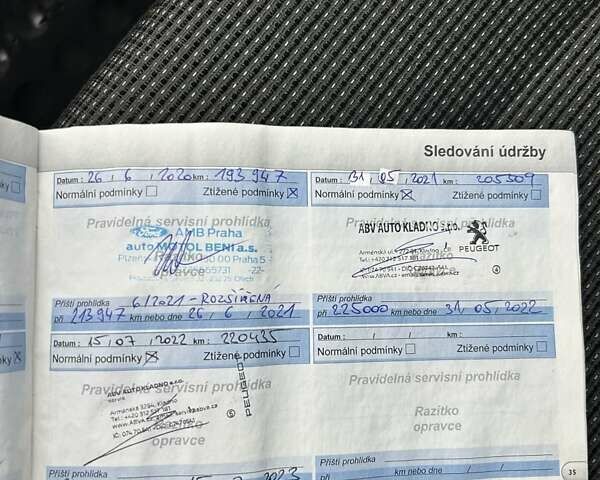 Sledování údržby
Datum : 26 / 6 / 2020 km : 193 947
Normální podmínky Ztížené podmínky
Pravidelná servisní prohlídka
Ford AMB Praha
auto MOTOL BENI a.s.
opravce
Příští prohlídka 6/2021 - ROZŠÍŘENÁ
při 213 947 km nebo dne 26 / 6 / 2021
Datum : 31 / 05 / 2021 km : 205509
Normální podmínky Ztížené podmínky
Pravidelná servisní prohlídka
ABV AUTO KLADNO s.r.o.
PEUGEOT
Razítko
opravce
4
Příští prohlídka
při 225000 km nebo dne 31 / 05 / 2022
Datum : 15 / 07 / 2022 km : 220435
Normální podmínky Ztížené podmínky
Pravidelná servisní prohlídka
ABV AUTO KLADNO s.r.o.
servis
PEUGEOT
5
opravce
Příští prohlídka
Datum : / / km :
Normální podmínky Ztížené podmínky
Pravidelná servisní prohlídka
Razítko
opravce
Příští prohlídka
při km nebo dne / /
35